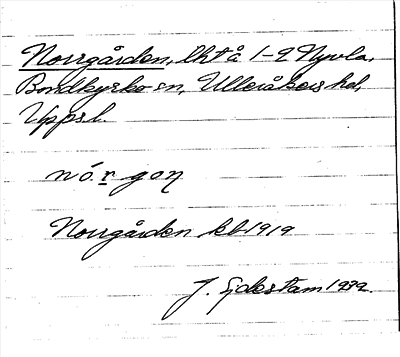 Norrgården, lht å 1-2 Nyvla,
Bondkyrko sn, Ulleråkers hd,
Uppsl.
nó.r gaɳ
Norrgården kb 1919
J. Ejdestam 1932.